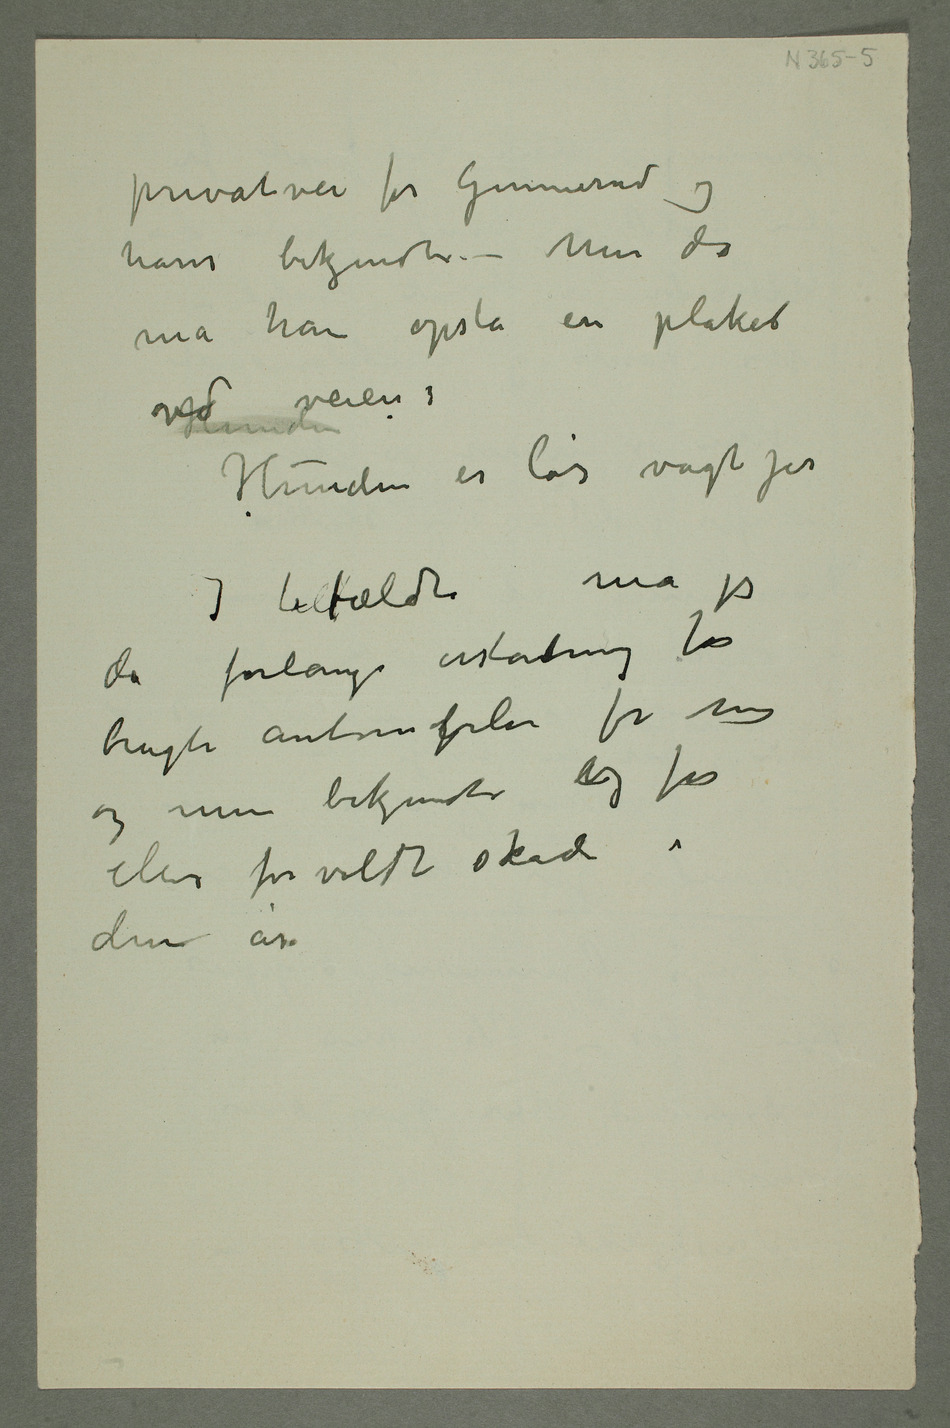 N 365-5
privatvei for Gunnerud og
hans bekjendte. – Men da
må han opslå en plakat
ved veien:
Hunden
Hunden er løs vogt jer
I tilfældte må jeg
da forlange erstatning for
brugte automobiler for mig
og mine bekjendte og for
ellers forvoldt skade i
den år